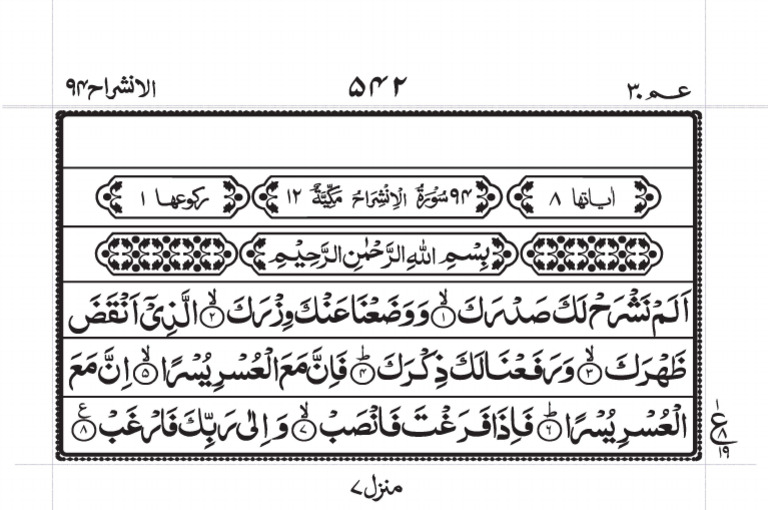 عـم ۳۰ ۵۴۲ الانشراح ۹۴
اٰیاتها ۸ ۹۴ سُوْرَةُ الْاِنْشِرَاحِ مَكِّيَّةٌ ۱۲ ركوعها ۱
بِسْمِ اللّٰهِ الرَّحْمٰنِ الرَّحِيْمِ
اَلَمْ نَشْرَحْ لَكَ صَدْرَكَ ۙ﴿۱﴾ وَوَضَعْنَا عَنْكَ وِزْرَكَ ۙ﴿۲﴾ الَّذِيْۤ اَنْقَضَ
ظَهْرَكَ ۙ﴿۳﴾ وَرَفَعْنَا لَكَ ذِكْرَكَ ؕ﴿۴﴾ فَاِنَّ مَعَ الْعُسْرِ يُسْرًا ۙ﴿۵﴾ اِنَّ مَعَ
الْعُسْرِ يُسْرًا ؕ﴿۶﴾ فَاِذَا فَرَغْتَ فَانْصَبْ ۙ﴿۷﴾ وَ اِلٰى رَبِّكَ فَارْغَبْ ﴿۸﴾ع
۱
ع
۸
۱۹
منزل ۷